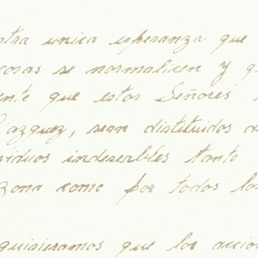 tra unica esperanza que
cosas se normalicen y q
ente que estos Señores
Vazquez, sean distituidos d
viduos indeseables tanto
Zona como por todos los
quisieramos que los accio